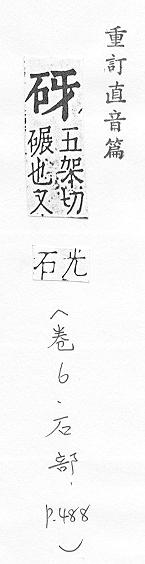 重訂直音篇
砑 五架切
碾也又
光石
(卷6.石部.
p.488)